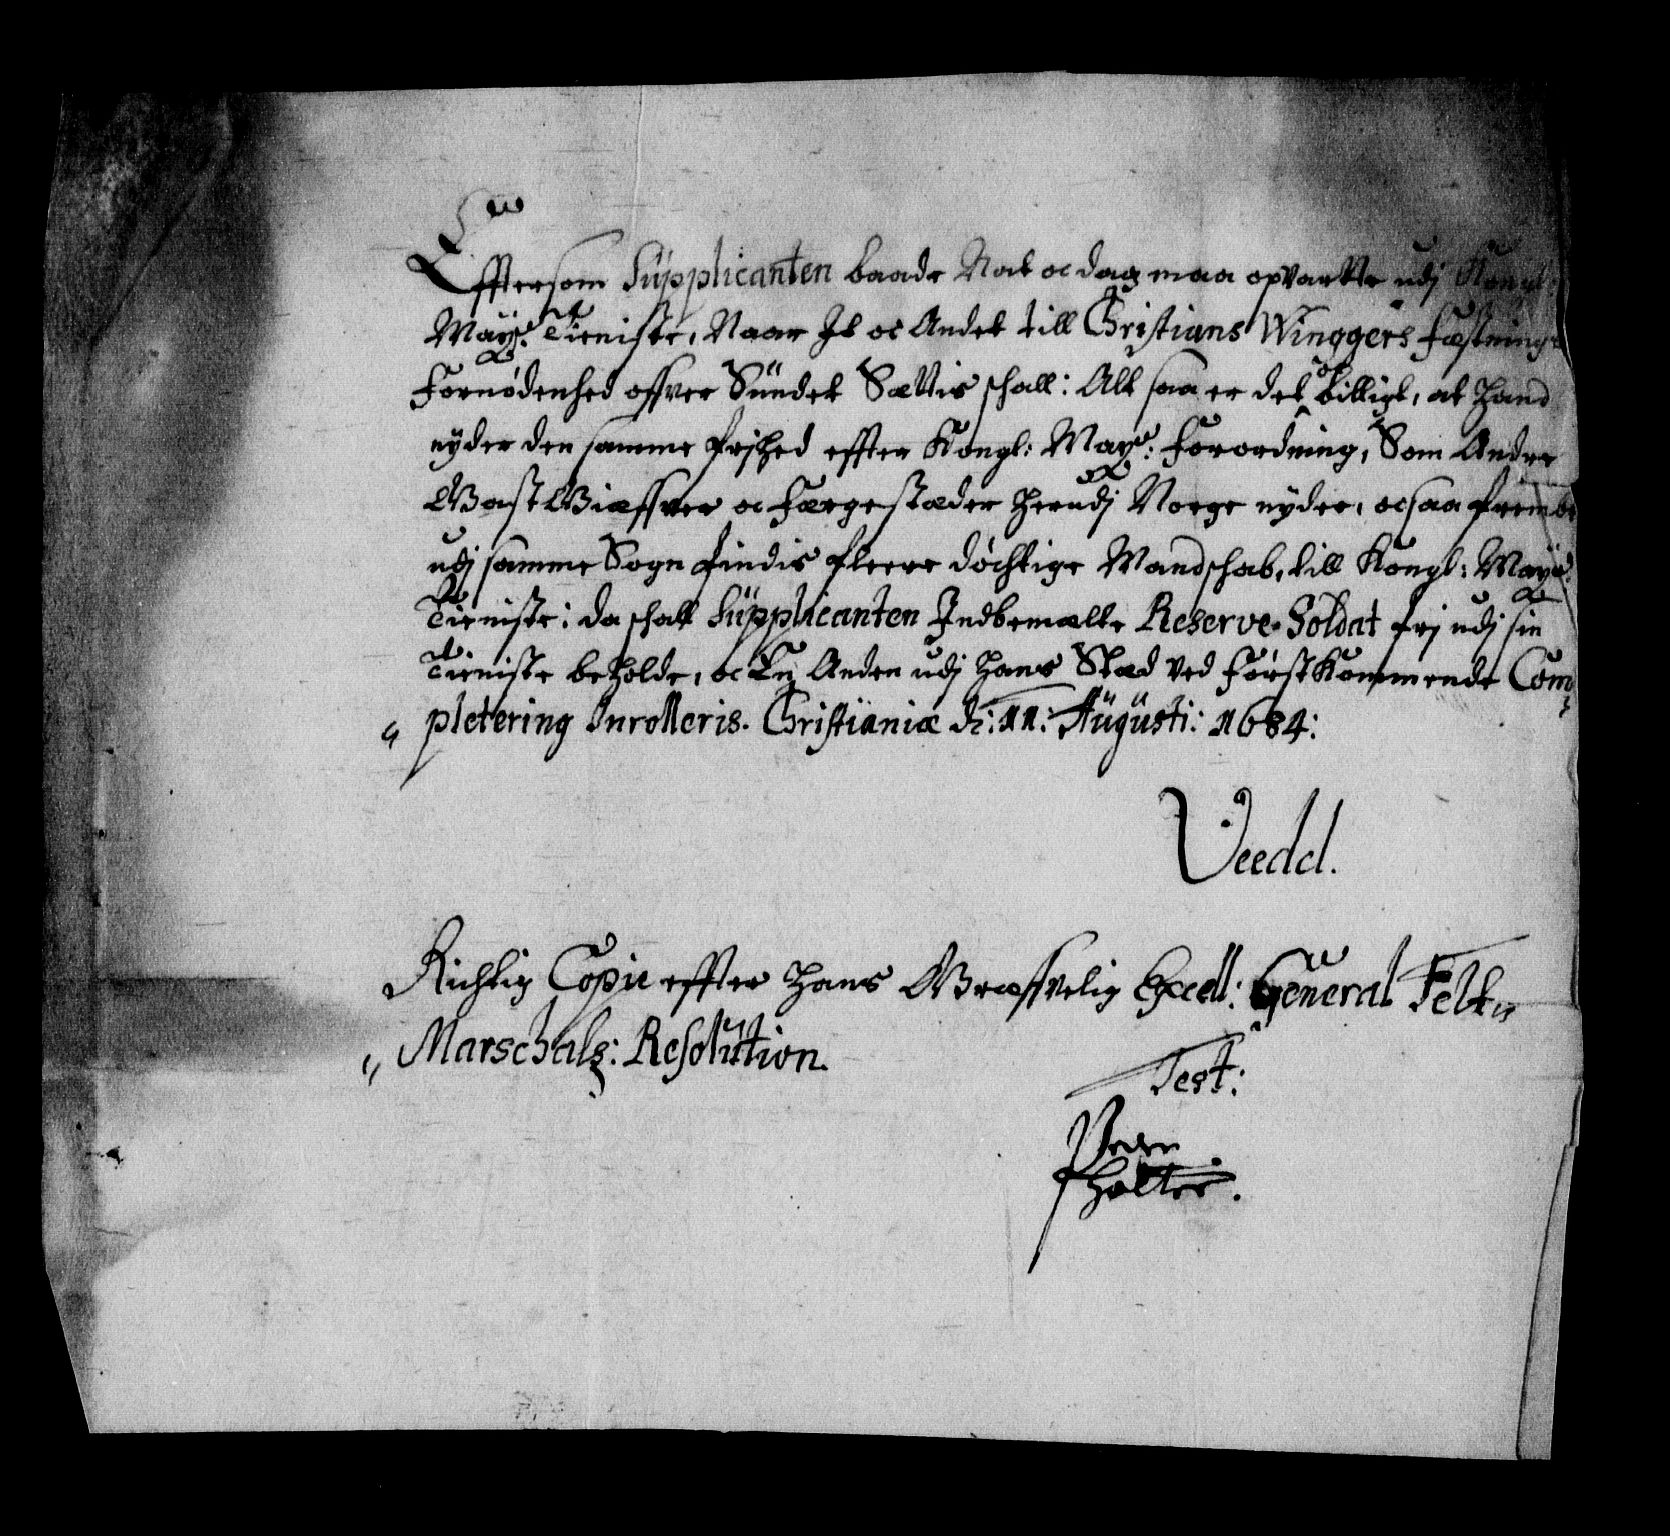 Efftersom Süpplicanten baade Nat oc dag maa opvartte udj Kongl:
Mayst: Tieniste, Naar Jt oc Andet till Christians Winggers Fæstnings
Fornødenhed offver Sündet Sættis schall: Alt saa er det oc billigt, at hand
nÿder den samme frjhed effter Kongl: Mayst: Forordning, Som Andre
Giæstgiæffver oc Færgestæder herudj Norge nÿder, ocsaa fremt
udj samme Sogn findis fleere døchtige Mandschab, till Kongl: Mayst:
Tieniste: da schall Süpplicanten Indbemælte Reserve-Soldat frj udj sin
Tieniste beholde, oc En Anden udj hans Stæd ved førstkommende Com
„ pletering Inrolleris. Christianiæ d: 11: Aügüsti: 1684:
Veedel.
Richtig Copie effter hans Græffvelig Excell: General Felt„
„ Marschalg: Resolution.
Test:
Peder
Holter.